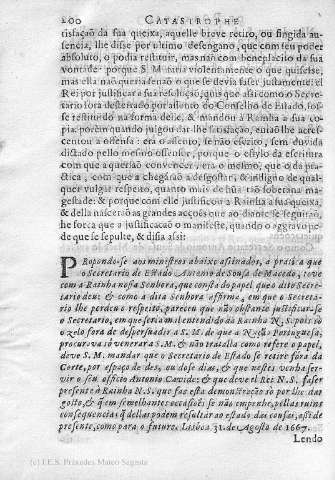 200 CATASTROPHE
tisfaçaõ da sua queixa, aquelle breve retiro, ou fingida au-
sencia, lhe disse por ultimo desengano, que com seu poder
absoluto, o podia restituir, mas naõ com beneplacito da sua
vontade: porque S. M. faria violentamente o que quisesse,
mas ella naõ queria senaõ o que se devia fazer justamente: el
Rei por justificar a sua resoluçaõ, quis que assi como o Secre-
tario fora desterrado por assento do Conselho de Estado, fos-
se restituido na forma delle, & mandou à Rainha a sua co-
pia, porèm quando julgou dar lhe satisfaçaõ, entaõ lhe acres-
centou a offensa: era o assento, se naõ escrito, sem duvida
dictado pello mesmo offensor, porque o estylo da escritura
com que a queriaõ convencer, era o mesmo, que o da pra-
ctica, com que a chegàraõ a desgostar, & indigno de qual-
quer vulgar respeito, quanto mais de hũa taõ soberana ma-
gestade: & porque com elle justificou a Rainha a sua queixa,
& della nascèraõ as grandes acções que ao diante se seguiràõ,
he força que a justificaçaõ o manifeste, quando o aggravo pe-
de que se sepulte, & dissa assi:
PRopondo-se aos ministros abaixo assinados, a pratica que
o Secretario de Estado Antonio de Sousa de Macedo, teve
com a Rainha nossa Senhora, que consta do papel que o dito Secre-
tario deu: & como a dita Senhora affirma, em que o Secreta-
rio lhe perdeu o respeito, pareceu que naõ obstante justificar-se
o Secretario, em que seria mal entendido da Rainha N. S. pois só
o zelo fora de despersuadir a S. M. de que a Naçaõ Portuguesa,
procurava só venerar a S. M. & naõ tratalla como refere o papel,
deve S. M. mandar que o Secretario de Estado se retire fóra da
Corte, por espaço de dez, ou doze dias, & que nestes venha ser-
vir o seu officio Antonio Cavide; & que deve el Rei N. S. fazer
presente à Rainha N. S. que faz esta demonstraçaõ só por lhe dar
gosto, & q̃ em semelhantes occasiões se naõ empenhe, pellas ruins
consequencias q̃ dellas podem resultar ao estado das cousas, assi de
presente, como para o futuro. Lisboa 31. de Agosto de 1667.
Lendo
(c) I.E.S. Práxedes Mateo Sagasta